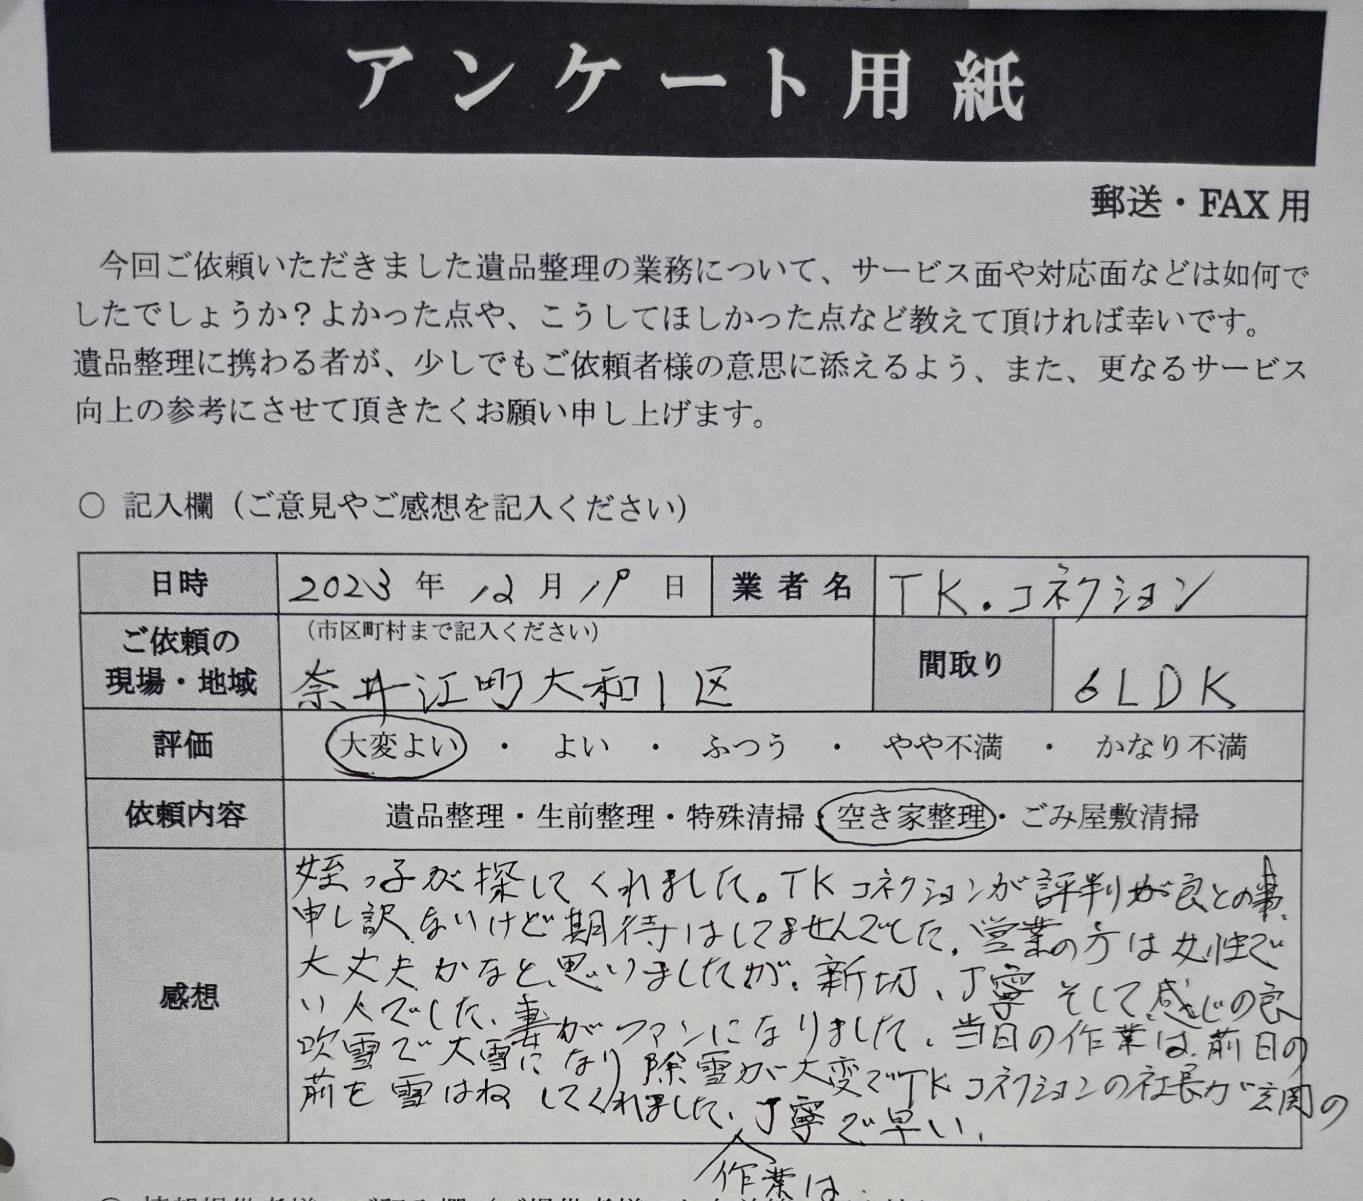 アンケート用紙
郵送・FAX 用
今回ご依頼いただきました遺品整理の業務について、サービス面や対応面などは如何で
したでしょうか？よかった点や、こうしてほしかった点など教えて頂ければ幸いです。
遺品整理に携わる者が、少しでもご依頼者様の意思に添えるよう、また、更なるサービス
向上の参考にさせて頂きたくお願い申し上げます。
○ 記入欄（ご意見やご感想を記入ください）
日時 2023 年 12 月 19 日 業者名 TK.コネクション
ご依頼の現場・地域 （市区町村まで記入ください） 奈井江町大和1区 間取り 6LDK
評価 大変よい ・ よい ・ ふつう ・ やや不満 ・ かなり不満
依頼内容 遺品整理・生前整理・特殊清掃・空き家整理・ごみ屋敷清掃
感想
姪っ子が探してくれました。TKコネクションが評判が良との事、
申し訳ないけど期待はしてませんでした。営業の方は女性で
大丈夫かなと思いましたが、新切、丁寧そして感じの良
い人でした、妻がファンになりました。当日の作業は、前日の
吹雪で大雪になり除雪が大変でTKコネクションの社長が玄関の
前を雪はねしてくれました、丁寧で早い。
作業は